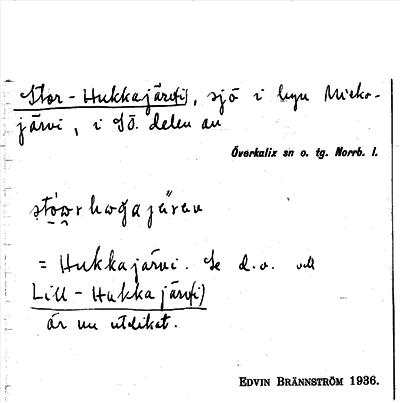 Stor-Hukkajärv(i), sjö i byn Mieko-
järvi, i Sö. delen av
Överkalix sn o. tg. Norrb. l.
= Hukkajärvi. Se d.o. och
Lill-Hukkajärv(i)
är nu utdikat.
EDVIN BRÄNNSTRÖM 1936.